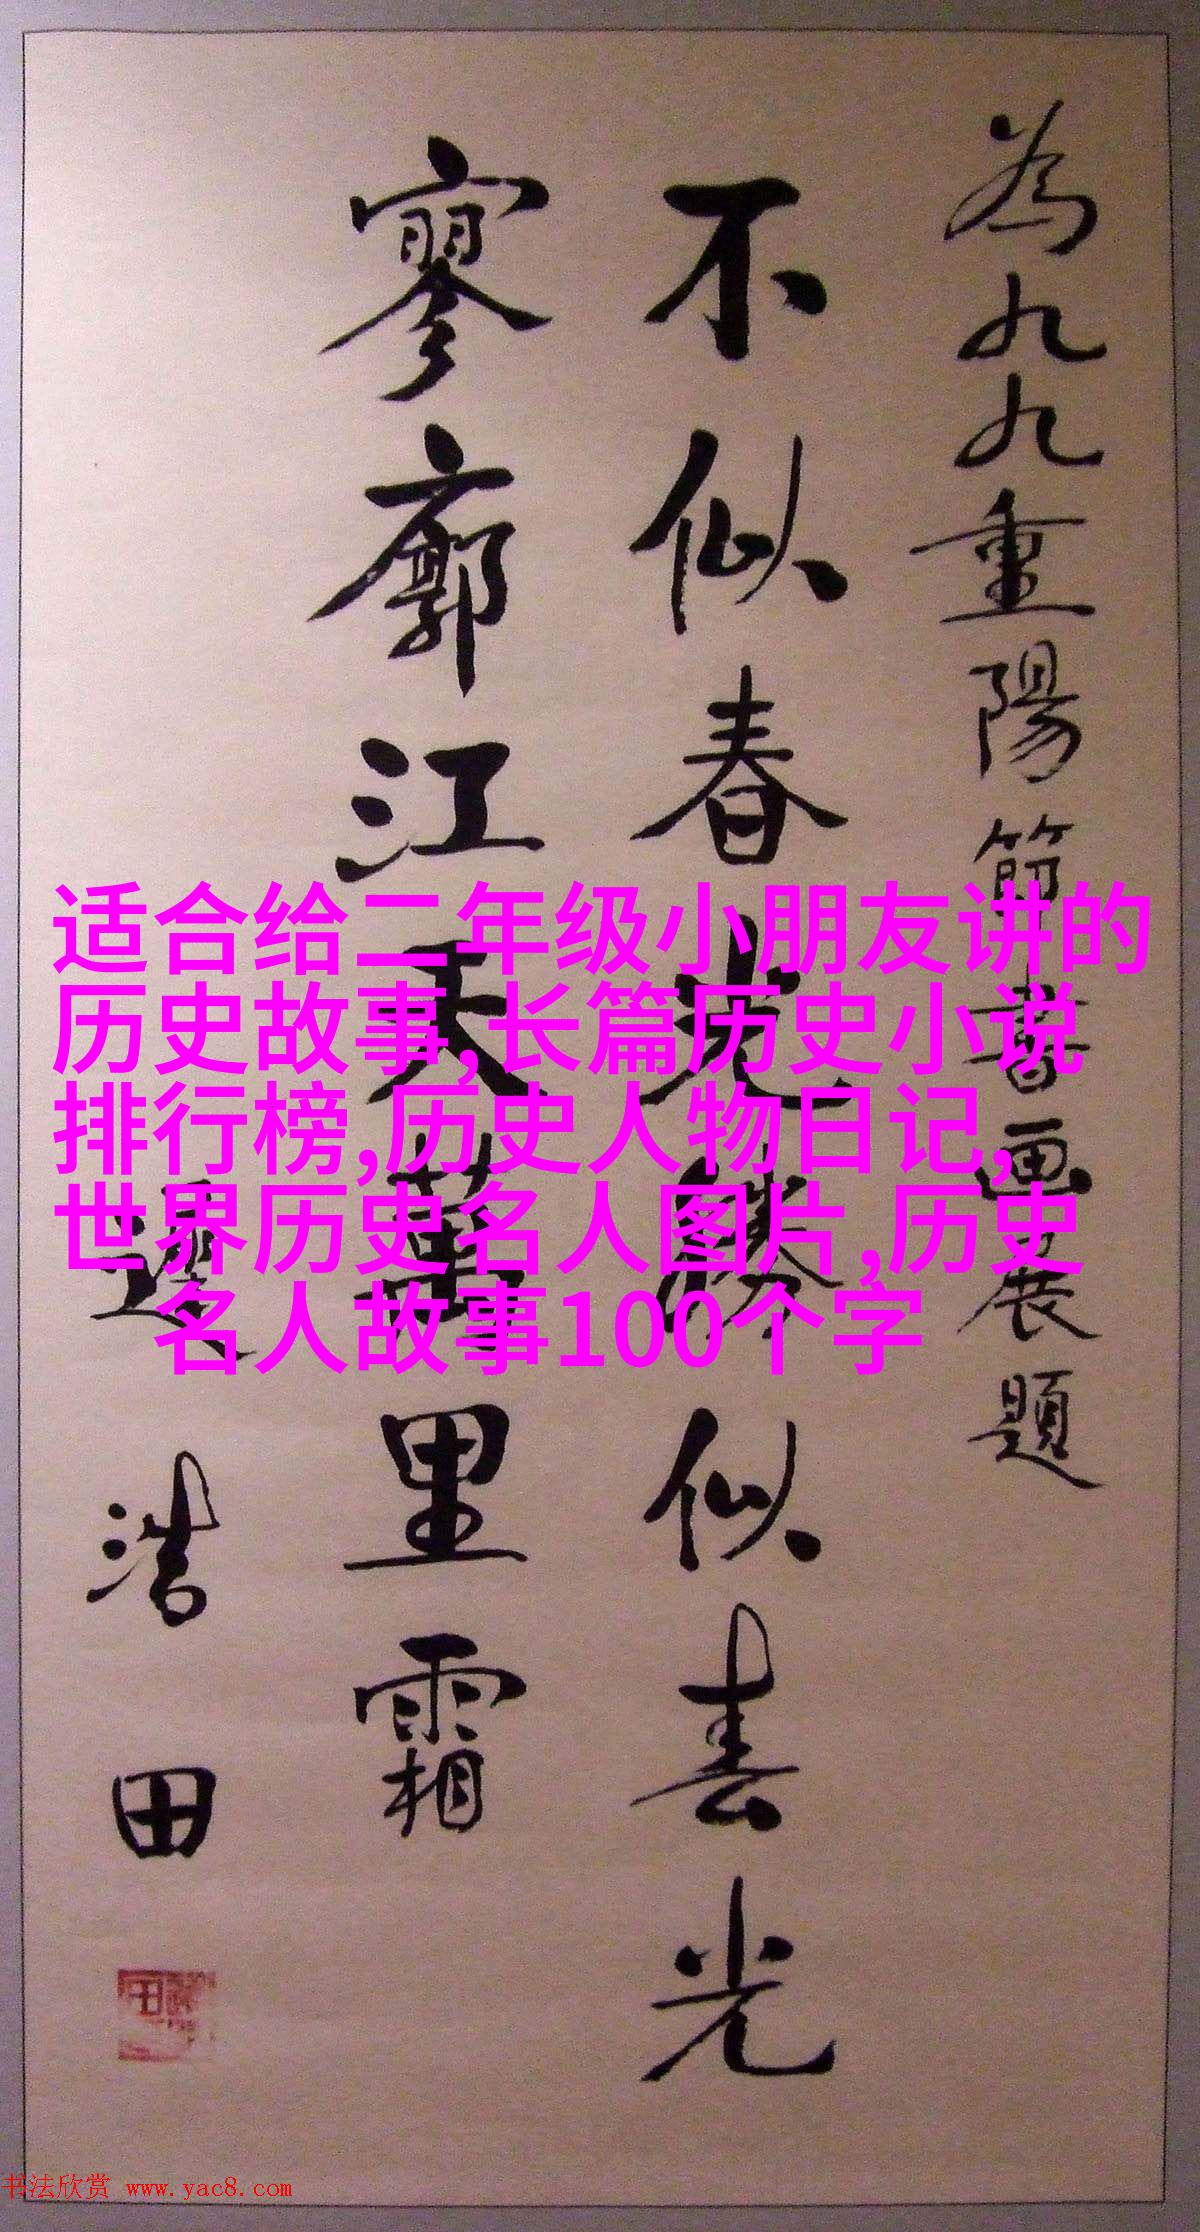 為九九重陽節書画展題
不似春光勝似春光
寥廓江天萬里霜
遲浩田
适合给二年级小朋友讲的
历史故事,长篇历史小说
排行榜,历史人物日记,
世界历史名人图片,历史
名人故事100个字
书法欣赏 www.yac8.com